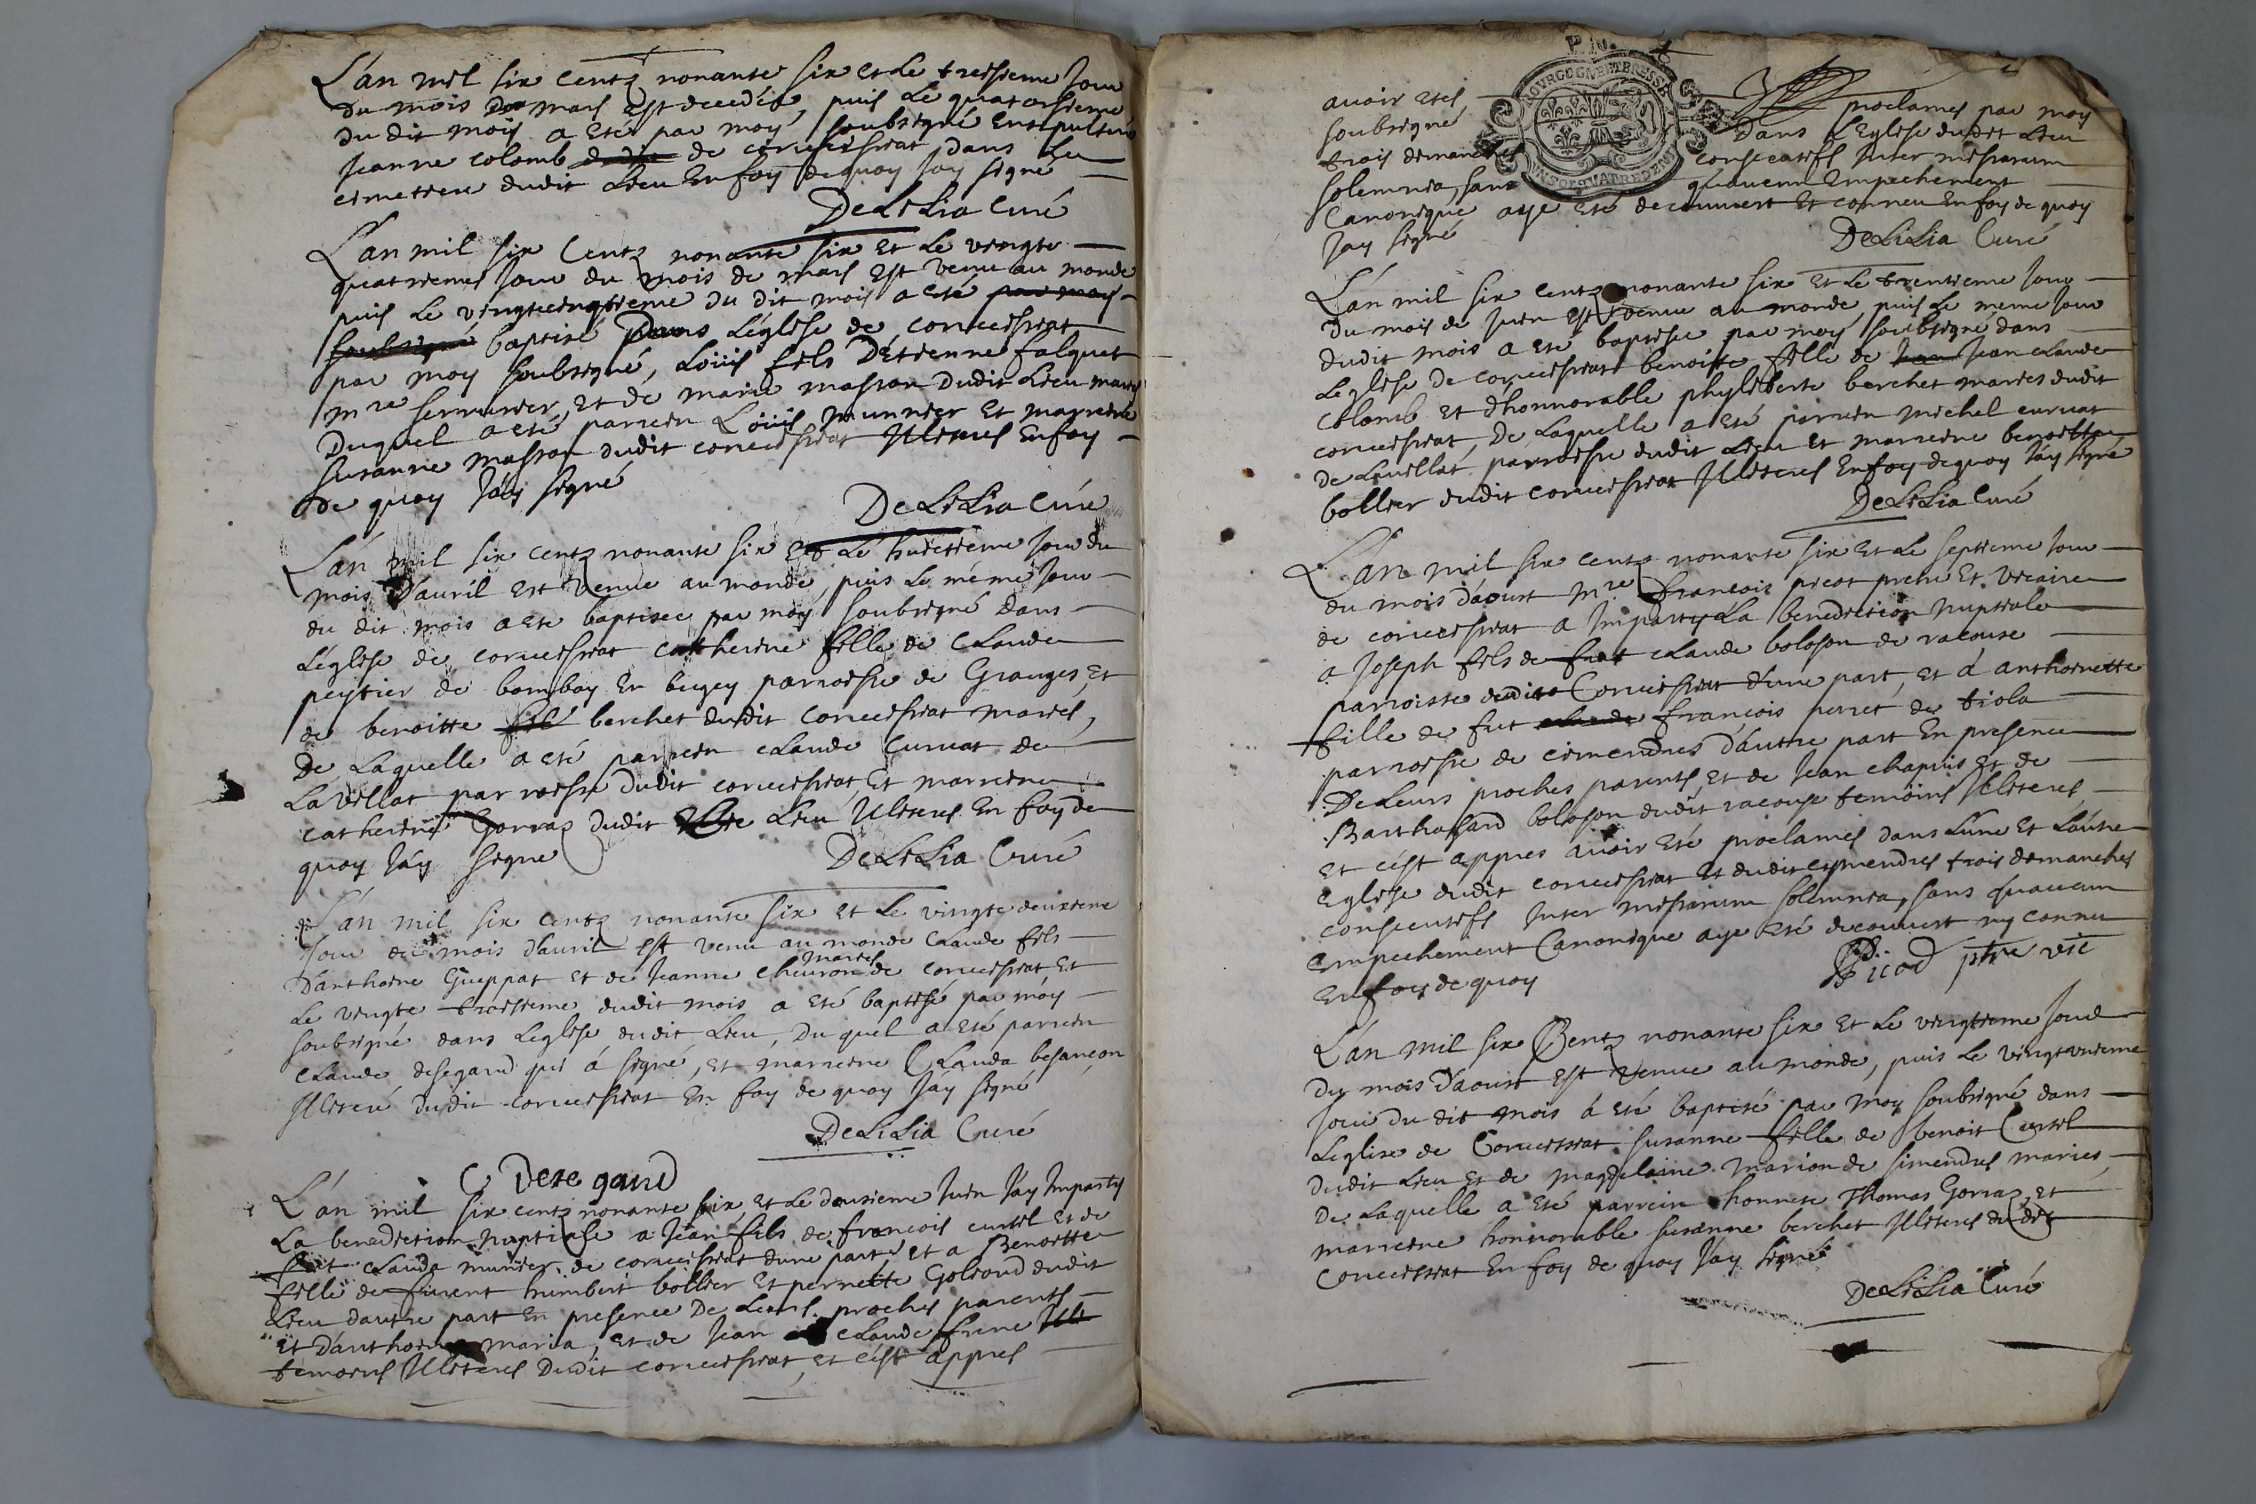 L'án mil six centz nonante six et Le treisieme Jour
du mois De mars est decedéé, puis Le quatorsieme
du dit mois a eté par moy soubsigné ensepulturé
Jeanne colomb dudit de corveissiat dans Le
cimetiere dudit Lieu En foy dequoy Jáy signé
DeLiLia Curé
L'an mil six Centz nonante six et Le vingte
quatrieme Jour du mois de mars est venu au monde
puis Le vingtcinqtieme du dit mois a eté par moy
soubsigné baptisé Dans L'églíse de corveissiat
par moy soubsigné, Loüis fils D'étienne falquet
mre serrurier, et de marie masson dudit Lieu mariés
Duquel a eté parrein Loüis munnier et marreine
susanne masson dudit corveissiat Illiterés En foy
de quoy Jáy signé
DeLiLia Curé
L'án mil six centz nonante six et Le huictieme Jour du
mois D'auríl est venue au monde puis Le méme Jour
du dit mois a eté baptisée par moy soubsigné dans
L'églíse de corveissiat catherine fille de cLaude
peytier de bomboy En bugey parroisse de Granges, et
de benoitte fil berchet dudit corveissiat mariés,
De Laquelle a eté parrein cLaude Curvat de
LaVillat parroisse dudit corveissiat, Et marreine
catherine Gorraz dudit Lieu Illiterés En foy de
quoy Jáy signe
DeLiLia Curé
L'án mil six centz nonante six et Le vingte deuxieme
Jour du mois d'auril est venu au monde cLaude fils
D'anthoine Gueppat et de Jeanne cheuron mariés de corveissiat, Et
Le vingte troisieme dudit mois a eté baptisé par móy
soubsigné dans L'eglise dudit Lieu, Duquel a eté parrein
cLaude desegaud qui á signé, et marreine CLauda besançon
Illiteré dudit corveissiat En foy de quoy Jáy signé
DeLiLia Curé
C Desegaud
L'án mil six centz nonante six, et Le deusieme Juin Jáy Imparty
La benediction nuptiale a Jean fils de francois curtil et de
fut cLauda munier de corveissiat dune part, et a Benoitte
fille de furent humbert bollier Et pernette Golioud dudit
Lieu dautre part En presence De Leurs proches parents
et Dánthoine maria, et de Jean cLaude frene Illi
temoins Illiterés Dudit corveissiat, et c'ést appres
avoir etés proclamés par moy
soubsigné Dans L'Eglise dudit Lieu
trois dimanches consecutifs Inter missarum
solemnia, sans quaucun Empechement
Canonique aye eté decouvert Et conneu En foy de quoy
Jay signé
DeLiLia Curé
BOURGOGNE ET BRESSE
L'án mil six centz nonante six et Le trentieme Jour
du mois de Juin est venue au monde, puis Le meme Jour
dudit mois a eté baptisée par moy soubsigné dans
Leglise de corveissiat benoitte fille de Jean Jean cLaude
Colomb et d'honnorable phyliberte berchet mariés dudit
corveissiat, De Laquelle a eté parrein michel curvat
de Lauillat parroisse dudit Lieu et marreine benoitte
bollier dudit corveissiat Illiterés En foy de quoy Jáy signé
DeLiLia Curé
L'án mil six centz nonante six et Le septieme Jour
du mois d'aoust mre francois picot pretre et vicaire
de corveissiat a Imparty La benediction nuptiale
a Joseph fils de fut cLaude boloson de racouse
parroisse dudit Corveissiat d'une part, et á anthoinette
fille de fut claude françois perret de tiola
parroisse de cimendres d'áutre part En presence
De Leurs proches parents et de Jean chapuis et de
Barthasard boloson dudit racouse temoins Illiterés
et c'ést appres auoir eté proclamés dans L'une et L'áutre
Eglise dudit corveissiat et dudit cimendres trois dimanches
consecutifs Inter missarum solemnia, sans quaucun
Empechement Canonique aye eté decouvert ny connu
En foy de quoy
Picod ptre vic
L'án mil six Centz nonante six et Le vingtieme Jour
du mois d'aoust est venue au monde, puis Le vingtunieme
Jour du dit mois á eté baptisé par moy soubsigné dans
L'eglise de Corveissiat susanne fille de benoit Curtil
dudit Lieu et de magdelaine marion de simendres mariés,
De Laquelle a eté parrein honnete Thomas Gorraz, et
marreine honnorable susanne berchet Illiterés dudit
Corveissiat En foy de quoy Jáy signé
DeLiLia Curé